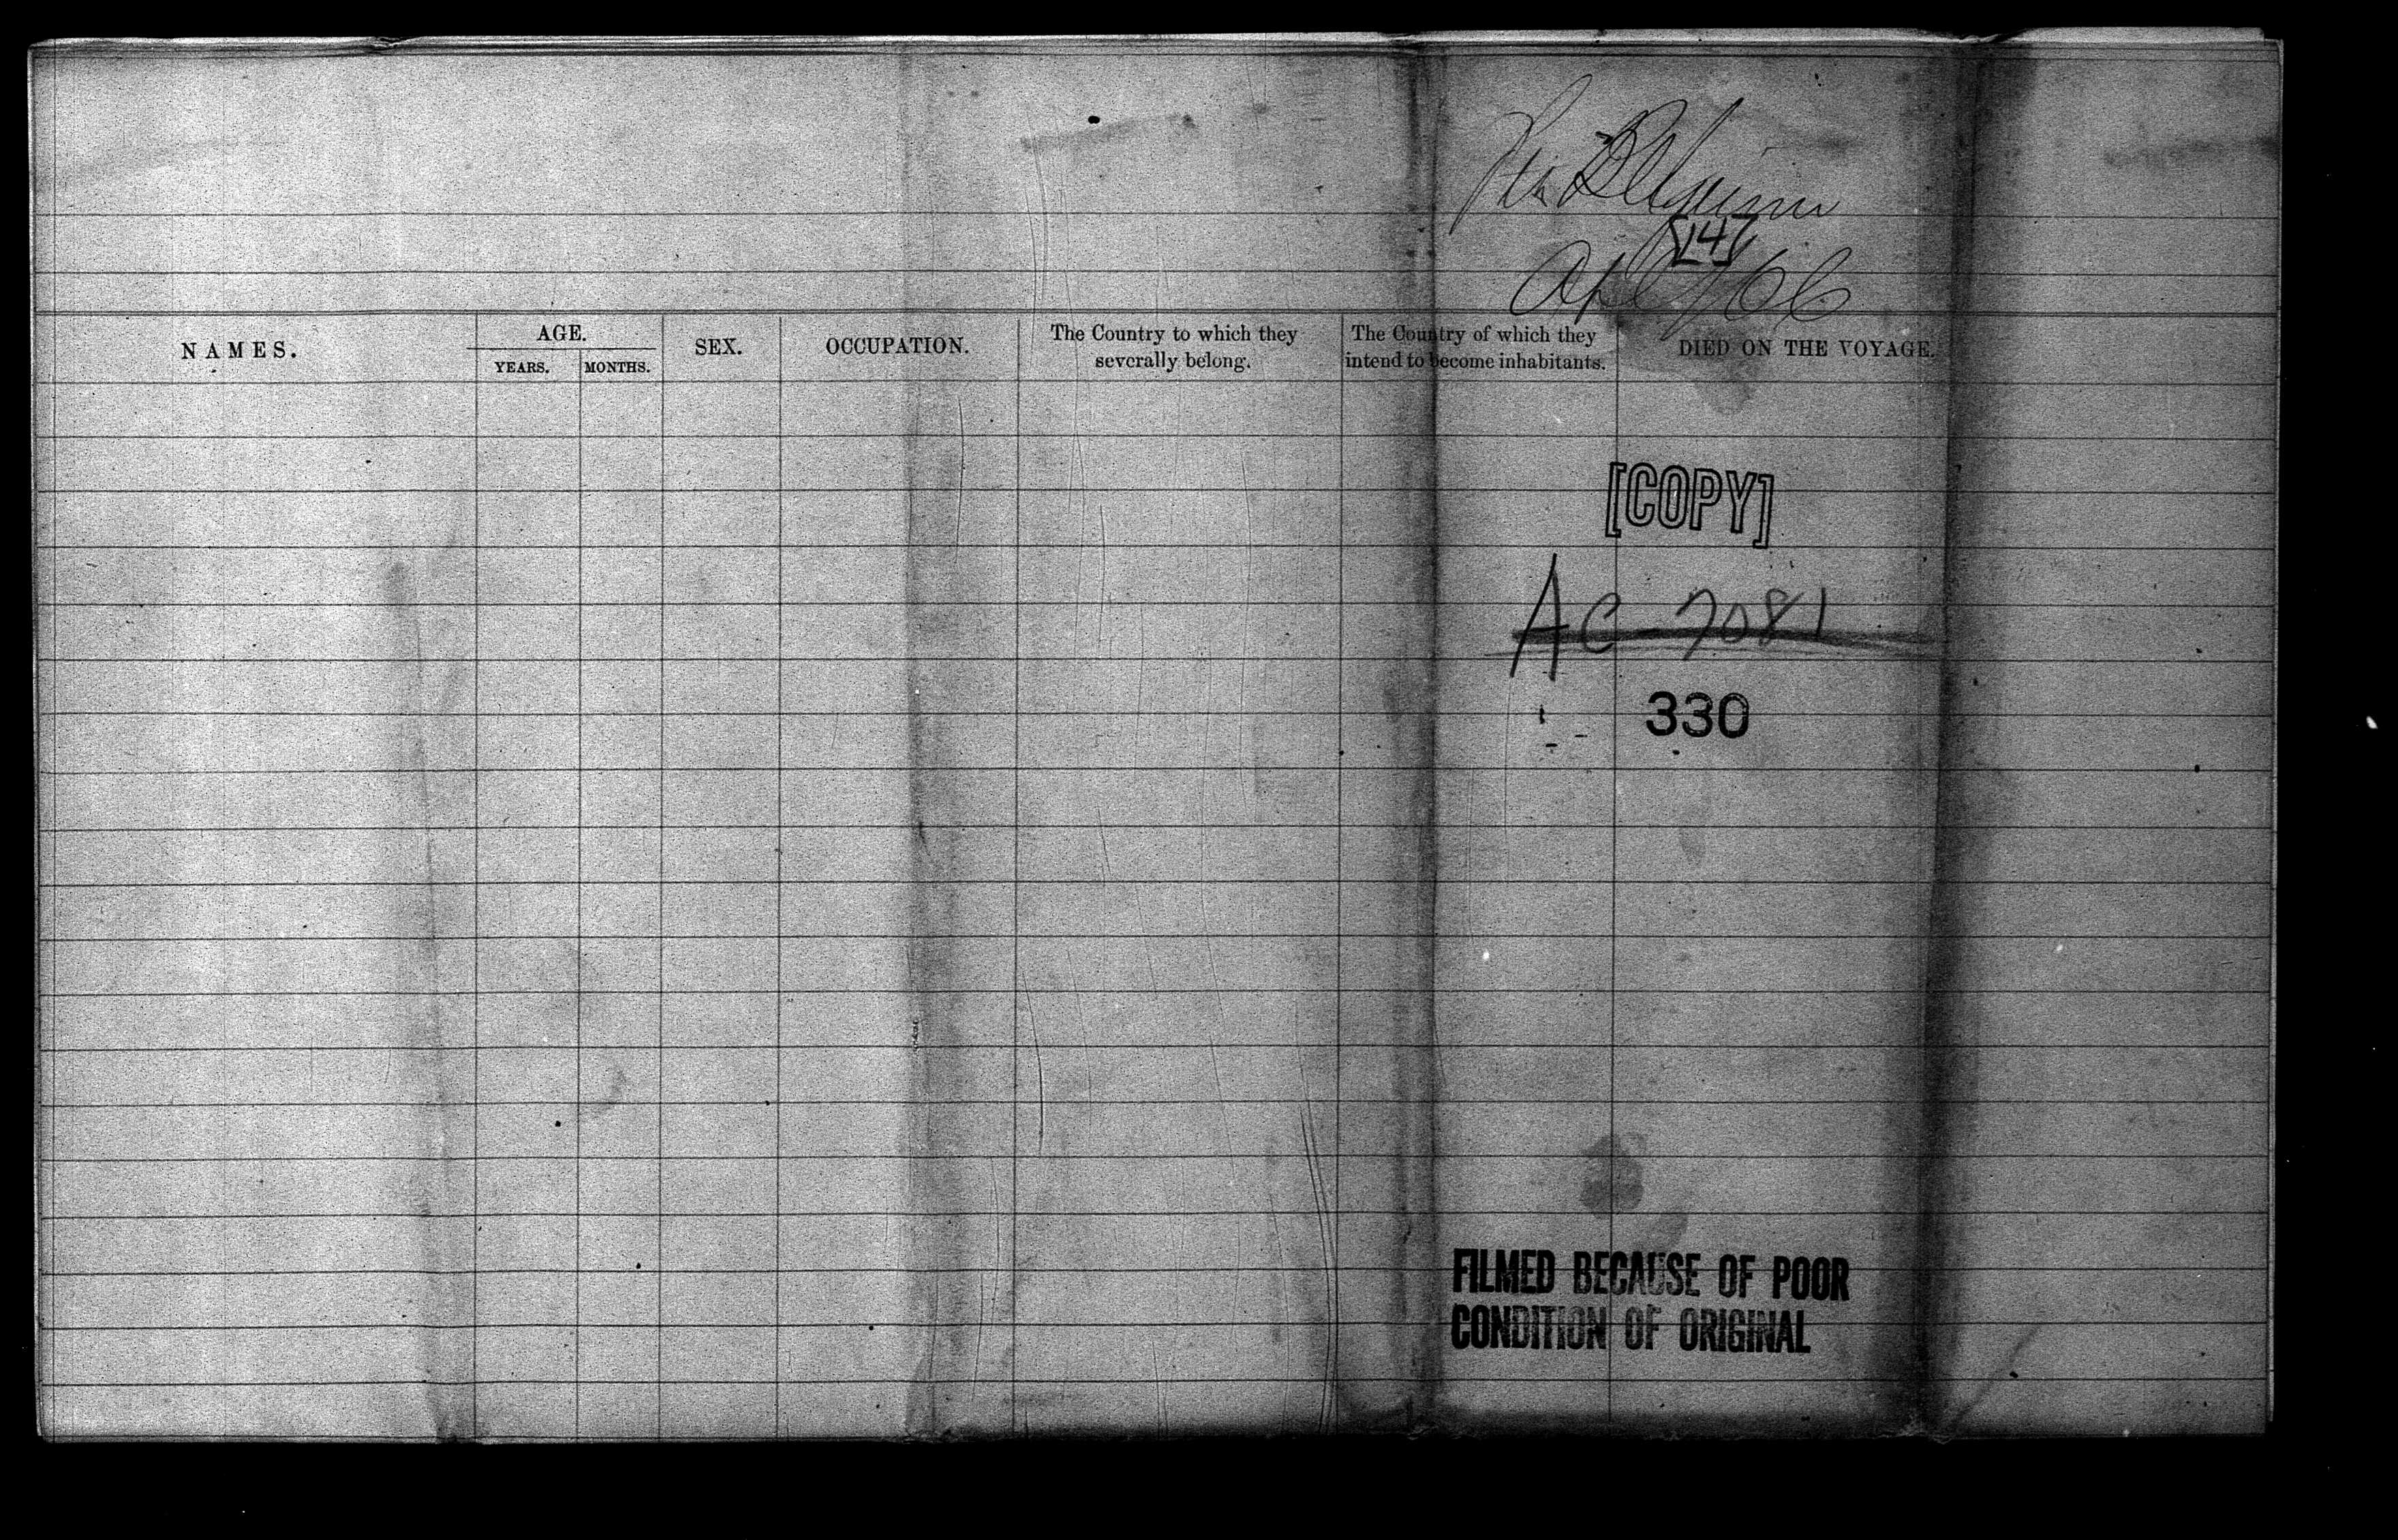 Str Belgium
[147]
Apl 9/66
NAMES.
AGE.
YEARS.
MONTHS.
SEX.
OCCUPATION.
The Country to which they
severally belong.
The Country of which they
intend to become inhabitants.
DIED ON THE VOYAGE.
[COPY]
AC 7081
330
FILMED BECAUSE OF POOR
CONDITION OF ORIGINAL